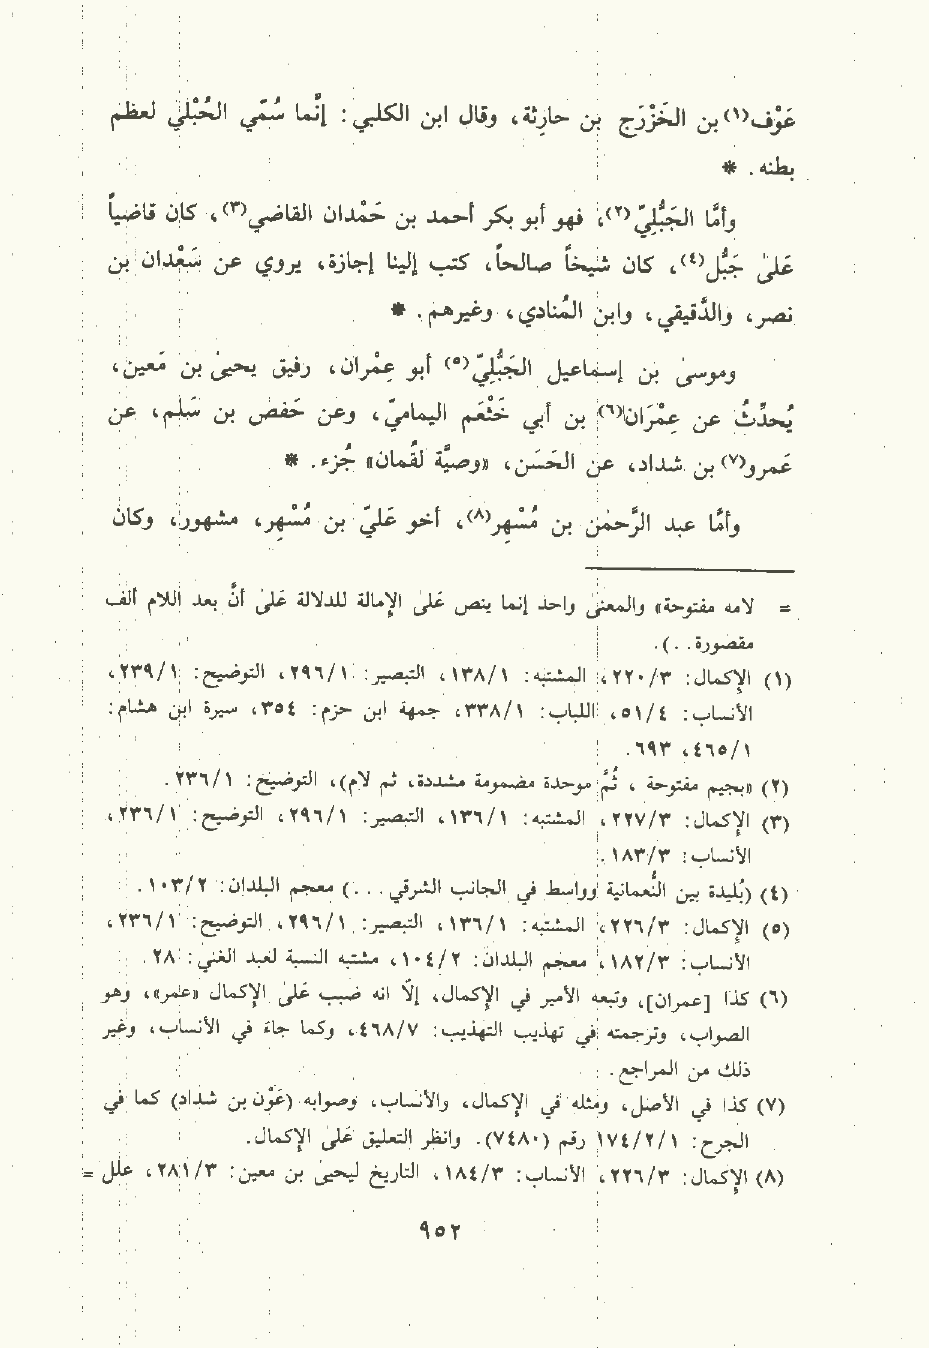 عَوْف(١) بن الخَزْرَج بن حارِثة، وقال ابن الكلبي: إنَّما سُمّي الحُبْلي لعظم
بطنه. *
وأمَّا الجَبُّلِيّ(٢)، فهو أبو بكر أحمد بن حَمْدان القاضي(٣)، كان قاضياً
عَلىٰ جَبُّل(٤)، كان شيخاً صالحاً، كتب إلينا إجازة، يروي عن سَعْدان بن
نصر، والدَّقيقي، وابن المُنادي، وغيرهم. *
وموسىٰ بن إسماعيل الجَبُّلِيّ(٥) أبو عِمْران، رفيق يحيىٰ بن مَعين،
يُحدِّثُ عن عِمْرَان(٦) بن أبي خَثْعَم اليماميّ، وعن حَفص بن سَلم، عن
عَمرو(٧) بن شداد، عن الحَسَن، «وصيَّة لقُمان» جُزء. *
وأمَّا عبد الرَّحمٰن بن مُسْهِر(٨)، أخو عَليّ بن مُسْهِر، مشهور، وكان
= لامه مفتوحة» والمعنىٰ واحد إنما ينص عَلىٰ الإمالة للدلالة عَلىٰ أنَّ بعد اللام ألف
مقصورة..).
(١) الإكمال: ٢٢٠/٣، المشتبه: ١٣٨/١، التبصير: ٢٩٦/١، التوضيح: ٢٣٩/١،
الأنساب: ٥١/٤، اللباب: ٣٣٨/١، جمهة ابن حزم: ٣٥٤، سيرة ابن هشام:
٤٦٥/١، ٦٩٣.
(٢) «بجيم مفتوحة، ثُمَّ موحدة مضمومة مشددة، ثم لام)، التوضيح: ٢٣٦/١.
(٣) الإكمال: ٢٢٧/٣، المشتبه: ١٣٦/١، التبصير: ٢٩٦/١، التوضيح: ٢٣٦/١،
الأنساب: ١٨٣/٣.
(٤) (بُليدة بين النُعمانية وواسط في الجانب الشرقي...) معجم البلدان: ١٠٣/٢.
(٥) الإكمال: ٢٢٦/٣، المشتبه: ١٣٦/١، التبصير: ٢٩٦/١، التوضيح: ٢٣٦/١،
الأنساب: ١٨٢/٣، معجم البلدان: ١٠٤/٢، مشتبه النسبة لعبد الغني: ٢٨.
(٦) كذا [عمران]، وتبعه الأمير في الإكمال، إلّا انه ضبب عَلىٰ الإكمال «عمر»، وهو
الصواب، وترجمته في تهذيب التهذيب: ٤٦٨/٧، وكما جاءَ في الأنساب، وغير
ذلك من المراجع.
(٧) كذا في الأصل، ومثله في الإكمال، والأنساب، وصوابه (عَوْن بن شداد) كما في
الجرح: ١٧٤/٢/١ رقم (٧٤٨٠). وانظر التعليق عَلىٰ الإكمال.
(٨) الإكمال: ٢٢٦/٣، الأنساب: ١٨٤/٣، التاريخ ليحيىٰ بن معين: ٢٨١/٣، علل =
٩٥٢